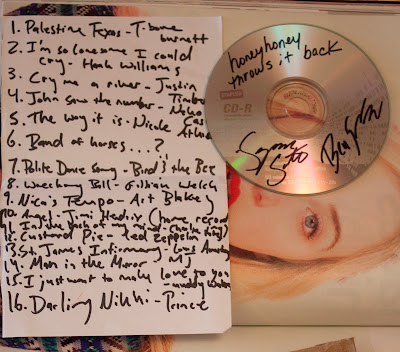 1. Palestine Texas - T-bone
burnett
2. I'm so lonesome I could
cry - Hank Williams
3. Cry me a river - Justin
4. John Saw the number - Neko
Case
5. The way it is - Nicole Atkins
6. Band of horses...?
7. Polite Dance Song - Bird & the Bee
8. Wrecking Ball - Gillian Welch
9. Nica's Tempo - Art Blakey
10. Angel - Jimi Hendrix (home record
11. In the back of my mind -
12. Custard Pie - Led Zeppelin
13. St James Infirmary - Louis
14. Man in the Mirror - MJ
15. I just want to make love to you
- muddy waters
16. Darling Nikki - Prince
honeyhoney
throws it back
CD-R